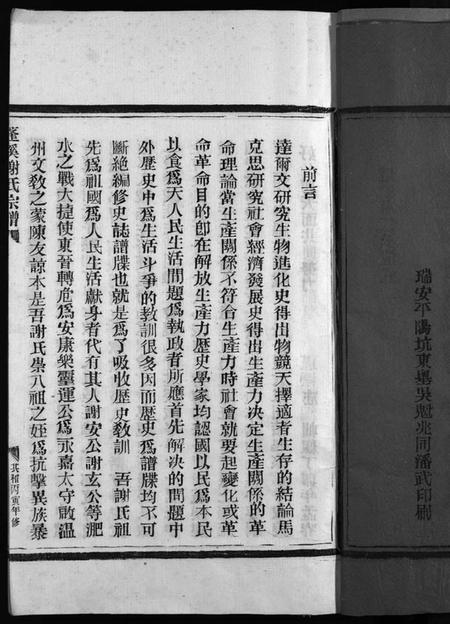 瑞安平陽坑東垟吳魁兆同潘武印刷
前言
達爾文研究生物進化史得出物競天擇適者生存的結論馬
克思研究社會經濟發展史得出生產力決定生產關係的革
命理論當生產關係不符合生產力時社會就要起變化或革
命革命目的卽在解放生產力歷史學家均認國以民爲本民
以食爲天人民生活問題爲執政者所應首先解決的問題中
外歷史中爲生活斗爭的教訓很多因而歷史爲譜牒均不可
斷絕編修史誌譜牒也就是爲了吸收歷史教訓 吾謝氏祖
先爲祖國爲人民生活獻身者代有其人謝安公謝玄公等淝
水之戰大捷使東晉轉危爲安康樂靈運公爲永嘉太守啟溫
州文教之蒙陳友諒本是吾謝氏崇八祖之姪爲抗擊異族暴
蓬溪謝氏宗譜
共和丙寅年修